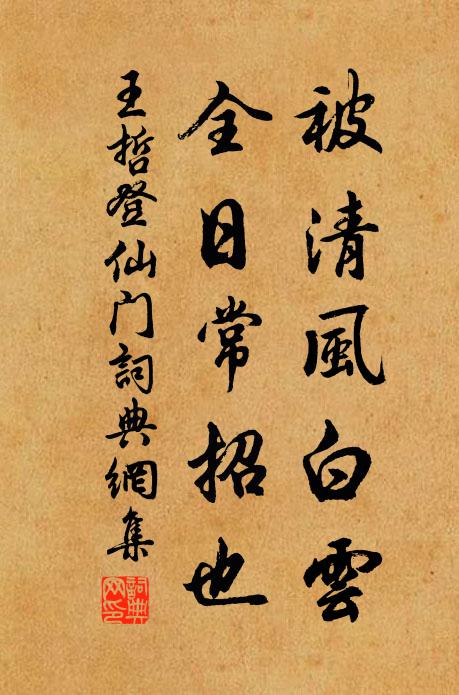 被清風白雲
全日常招也
王哲登仙门詞典網集
詞典网印